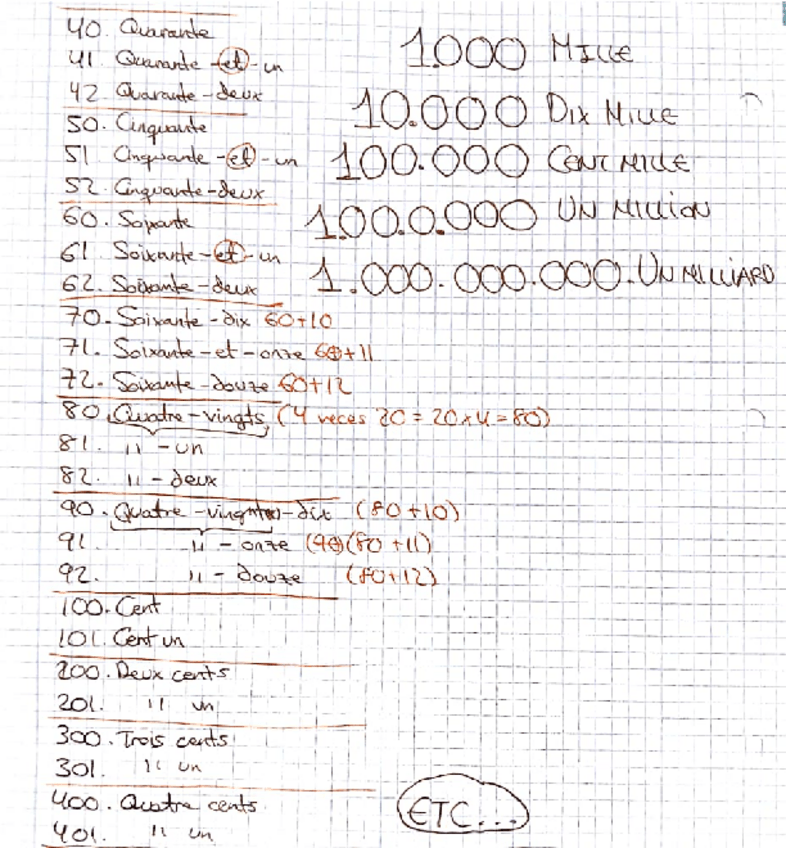 40. Quarante
41. Quarante-et-un
42. Quarante-deux
50. Cinquante
51. Cinquante-et-un
52. Cinquante-deux
60. Soixante
61. Soixante-et-un
62. Soixante-deux
70. Soixante-dix 60+10
71. Soixante-et-onze 60+11
72. Soixante-douze 60+12
80. Quatre-vingts (4 veces 20 = 20x4=80)
81. " - un
82. " - deux
90. Quatre-vingt-dix (80+10)
91. " - onze (80+11)
92. " - douze (80+12)
100. Cent
101. Cent un
200. Deux cents
201. " un
300. Trois cents
301. " un
400. Quatre cents
401. " un
1.000 MILLE
10.000 DIX MILLE
100.000 CENT MILLE
1.000.000 UN MILLION
1.000.000.000. UN MILLIARD
ETC...